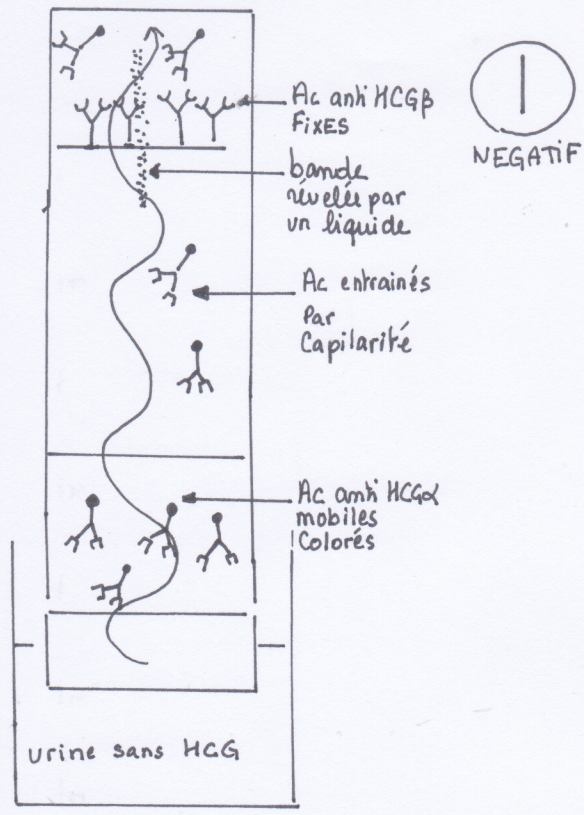 Ac anti HCGβ
FixES
NEGATIF
bande
révelée par
un liquide
Ac entrainés
Par
Capilarité
Ac anti HCGα
mobiles
Colorés
urine sans HCG